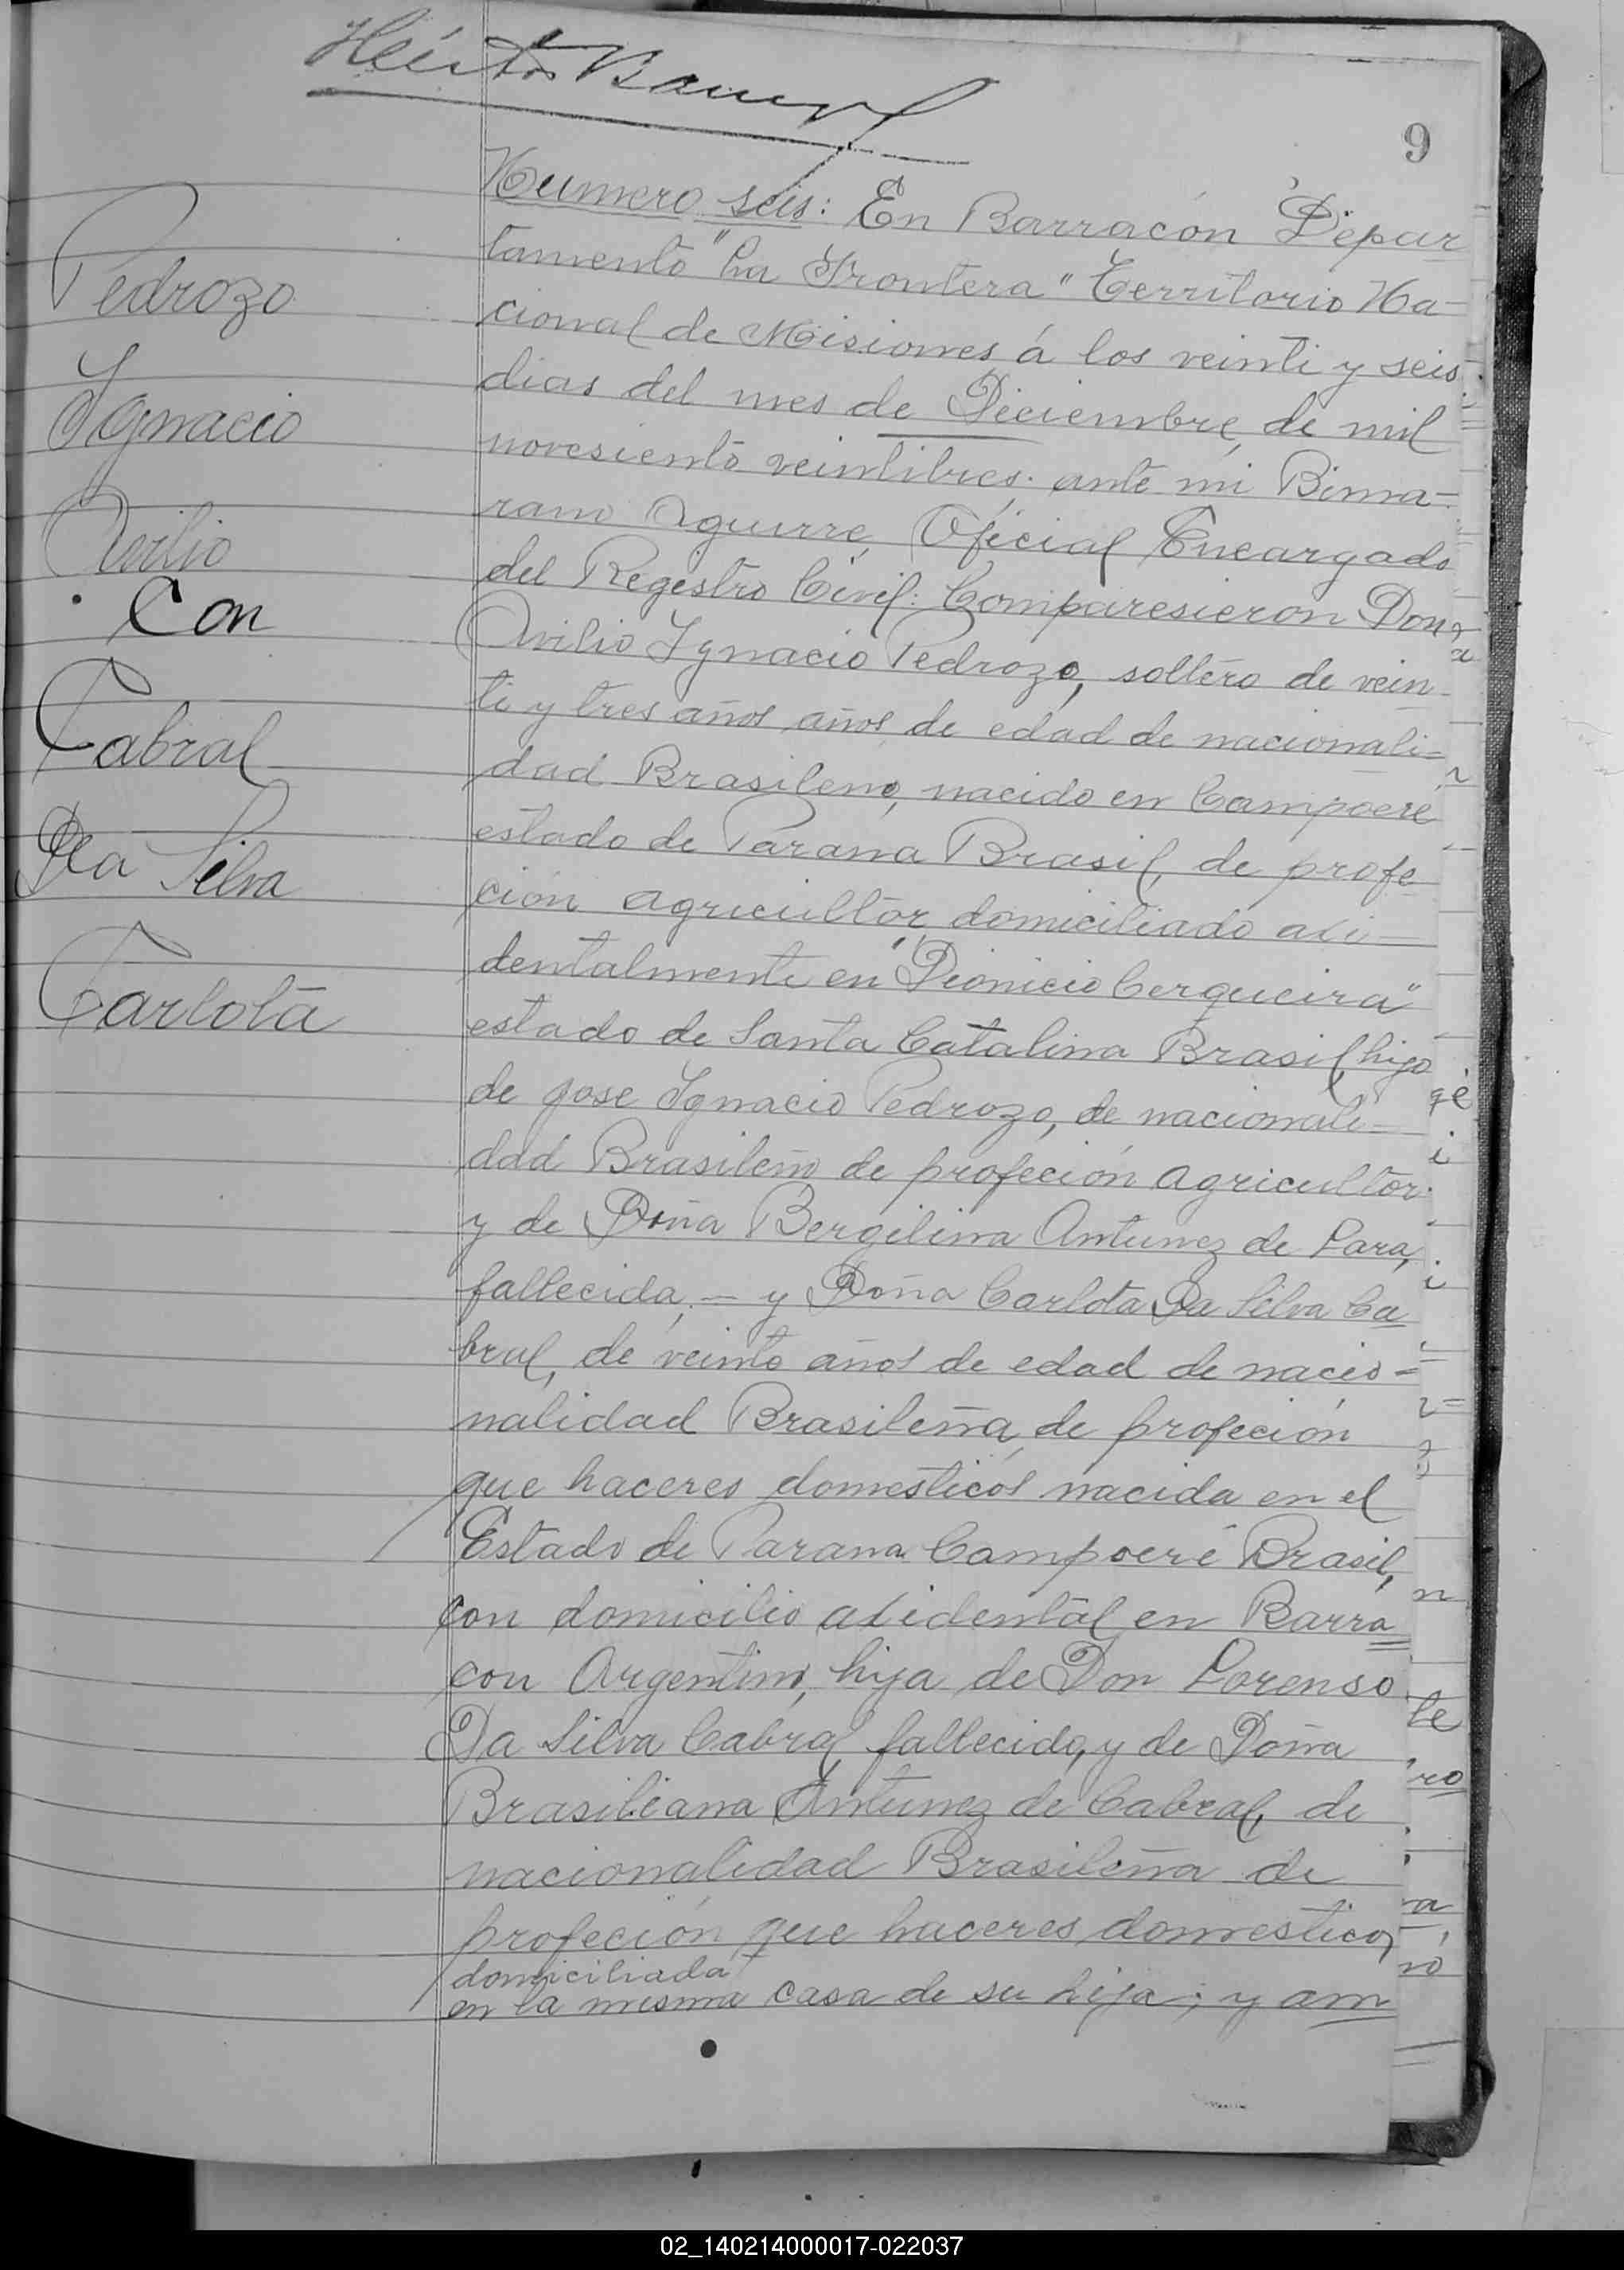 Héctor
9
Numero seis: En Barracón Depar
tamento "La Frontera" Territorio Na-
cional de Misiones á los veinti y seis
dias del mes de Diciembre, de mil
novesiento veintitres; ante mi Bima-
rano Aguirre, Oficial Encargado
del Registro Civil: Comparesieron Don
Avilio Ygnacio Pedrozo, soltero de vein-
ti y tres años años de edad de nacionali-
dad Brasileno, nacido en Campoeré
estado de Parana Brasil, de profe-
ción agricultor, domiciliado axi-
dentalmente en "Dionicio Cerqueira"
estado de Santa Catalina Brasil, hijo
de Jose Ygnacio Pedrozo, de nacionali-
dad Brasileño de profeción agricultor
y de Doña Bergilina Antunez de Lara,
fallecida, - y Doña Carlota Da Silva Ca
bral, de veinte años de edad de nacio=
nalidad Brasileña, de profeción
que haceres domesticos nacida en el
Estado de Parana Campoeré Brasil,
con domicilio axidental en Barra
con Argentino, hija de Don Lorenso
Da Silva Cabral, fallecido, y de Doña
Brasiliana Antunez de Cabral, de
nacionalidad Brasileña de
profeción que haceres domestico,
domiciliada
en la misma casa de su hija; y am
Pedrozo
Ygnacio
Avilio
Con
Cabral
Da Silva
Carlota
02_140214000017-022037